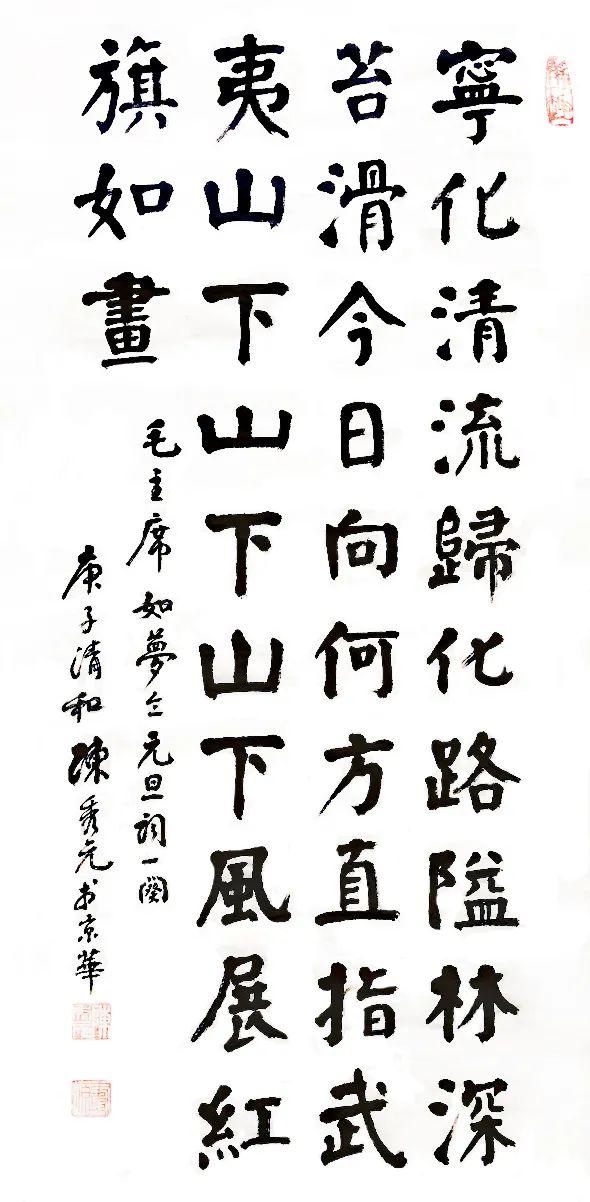 寧化清流歸化路隘林深
苔滑今日向何方直指武
夷山下山下山下風展紅
旗如畫
毛主席如夢令元旦詞一闋
庚子清和陳秀元书京華